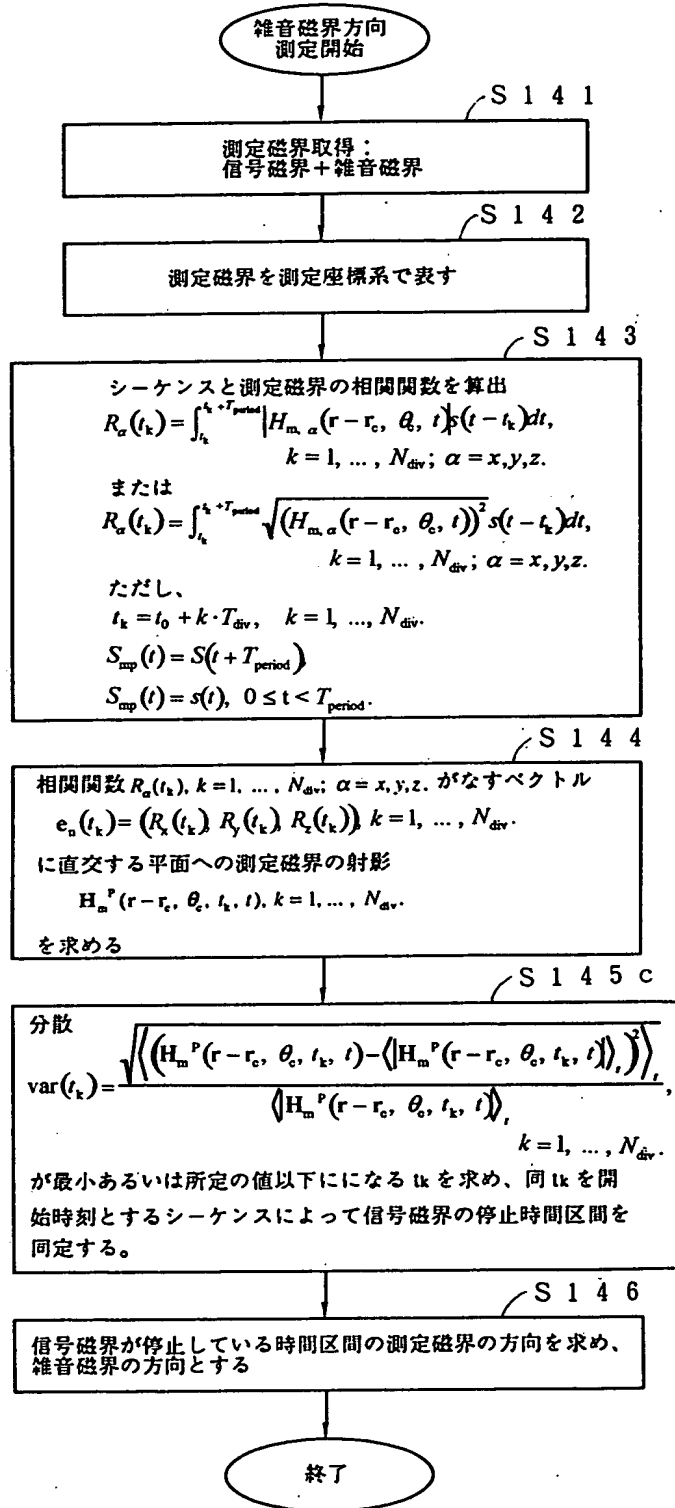 雑音磁界方向
測定開始
S141
測定磁界取得：
信号磁界＋雑音磁界
S142
測定磁界を測定座標系で表す
S143
シーケンスと測定磁界の相関関数を算出
R_α(t_k) = ∫_{t_k}^{t_k+T_period} |H_{m, α}(r − r_c, θ_c, t)| s(t − t_k)dt,
k = 1, ... , N_div; α = x,y,z.
または
R_α(t_k) = ∫_{t_k}^{t_k+T_period} √((H_{m, α}(r − r_c, θ_c, t))²) s(t − t_k)dt,
k = 1, ... , N_div; α = x,y,z.
ただし、
t_k = t_0 + k·T_div, k = 1, ..., N_div.
S_mp(t) = S(t + T_period),
S_mp(t) = s(t), 0 ≤ t < T_period.
S144
相関関数 R_α(t_k), k = 1, ... , N_div; α = x,y,z. がなすベクトル
e_n(t_k) = (R_x(t_k), R_y(t_k), R_z(t_k)), k = 1, ... , N_div.
に直交する平面への測定磁界の射影
H_m^P(r − r_c, θ_c, t_k, t), k = 1, ... , N_div.
を求める
S145c
分散
var(t_k) = √⟨(H_m^P(r − r_c, θ_c, t_k, t) − ⟨|H_m^P(r − r_c, θ_c, t_k, t)|⟩_t)²⟩_t / ⟨|H_m^P(r − r_c, θ_c, t_k, t)|⟩_t,
k = 1, ... , N_div.
が最小あるいは所定の値以下にになる tk を求め、同 tk を開
始時刻とするシーケンスによって信号磁界の停止時間区間を
同定する。
S146
信号磁界が停止している時間区間の測定磁界の方向を求め、
雑音磁界の方向とする
終了